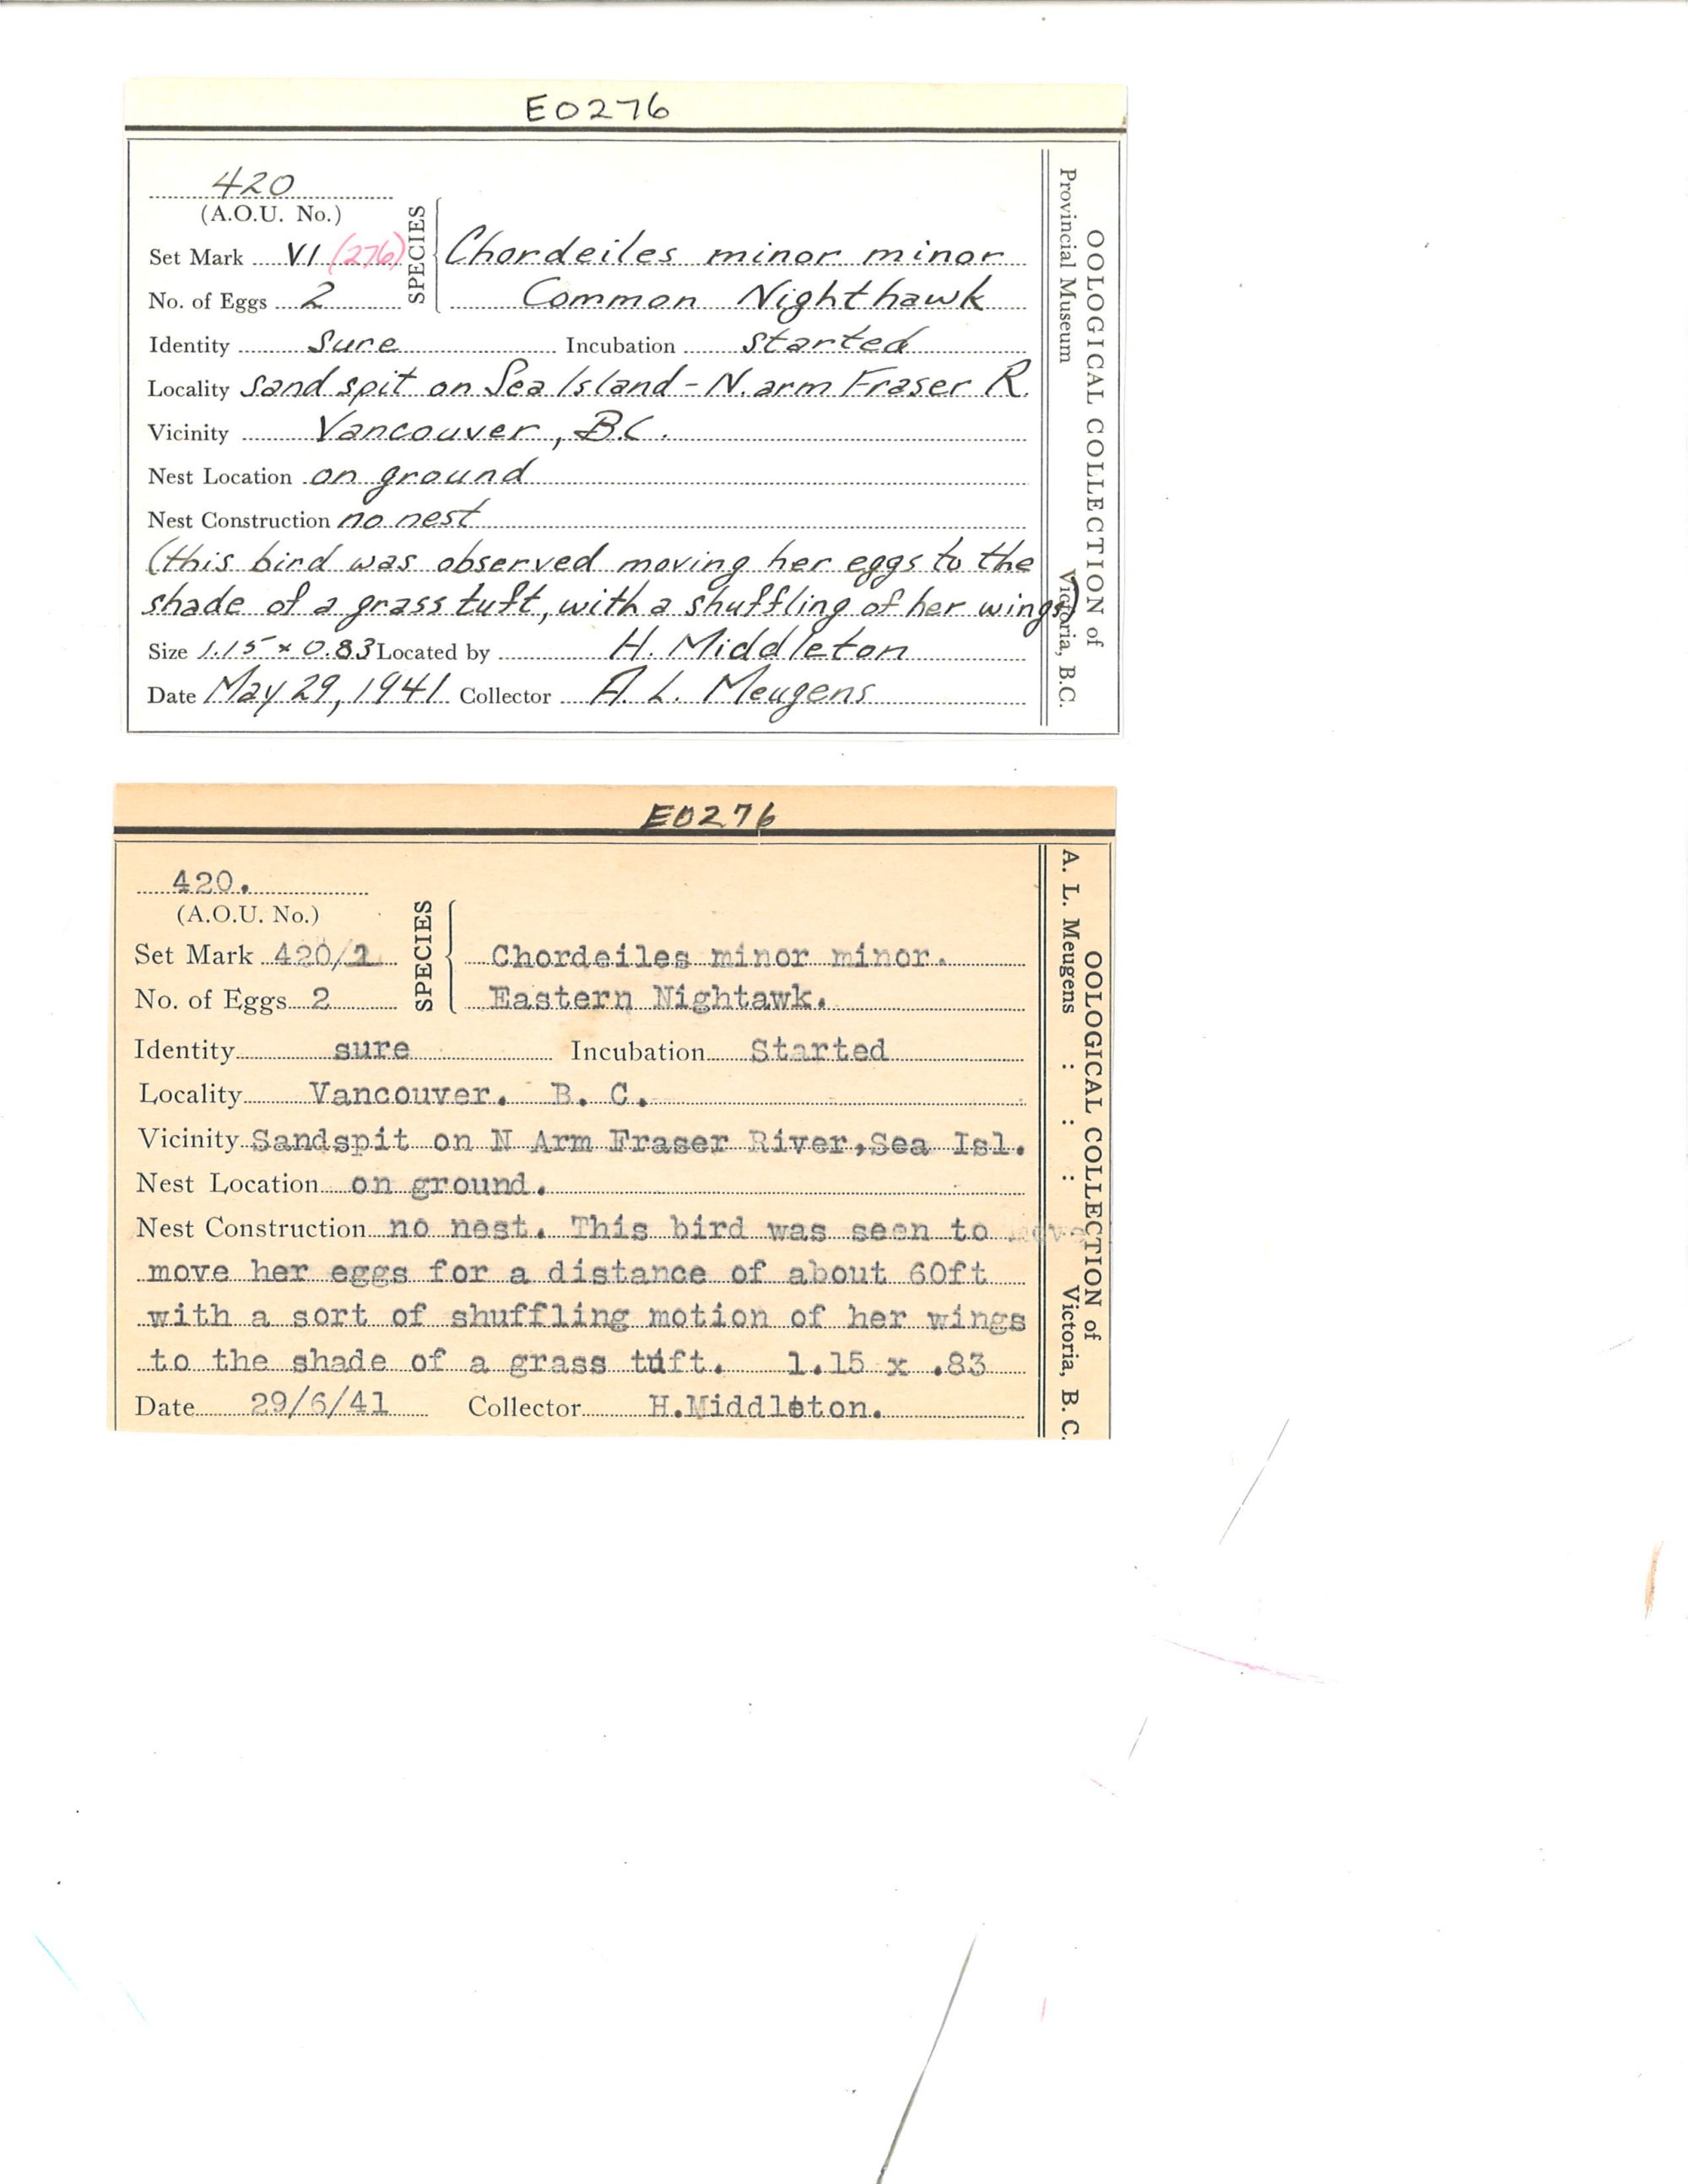 E0276
420
(A.O.U. No.)
Set Mark VI (276)
No. of Eggs 2
SPECIES
Chordeiles minor minor
Common Nighthawk
Identity Sure Incubation started
Locality Sand spit on Sea Island - N. arm Fraser R.
Vicinity Vancouver, B.C.
Nest Location on ground
Nest Construction no nest
(this bird was observed moving her eggs to the
shade of a grass tuft, with a shuffling of her wings)
Size 1.15 x 0.83 Located by H. Middleton
Date May 29, 1941 Collector A. L. Meugens
OOLOGICAL COLLECTION of
Provincial Museum Victoria, B.C.
E0276
420.
(A.O.U. No.)
Set Mark 420/
No. of Eggs 2
SPECIES
Chordeiles minor minor.
Eastern Nightawk.
Identity sure Incubation Started
Locality Vancouver. B. C.
Vicinity Sandspit on N Arm Fraser River,Sea Isl.
Nest Location on ground.
Nest Construction no nest. This bird was seen to move
move her eggs for a distance of about 60ft
with a sort of shuffling motion of her wings
to the shade of a grass tuft. 1.15 x .83
Date 29/6/41 Collector H.Middleton.
OOLOGICAL COLLECTION of
A. L. Meugens : : : Victoria, B. C.